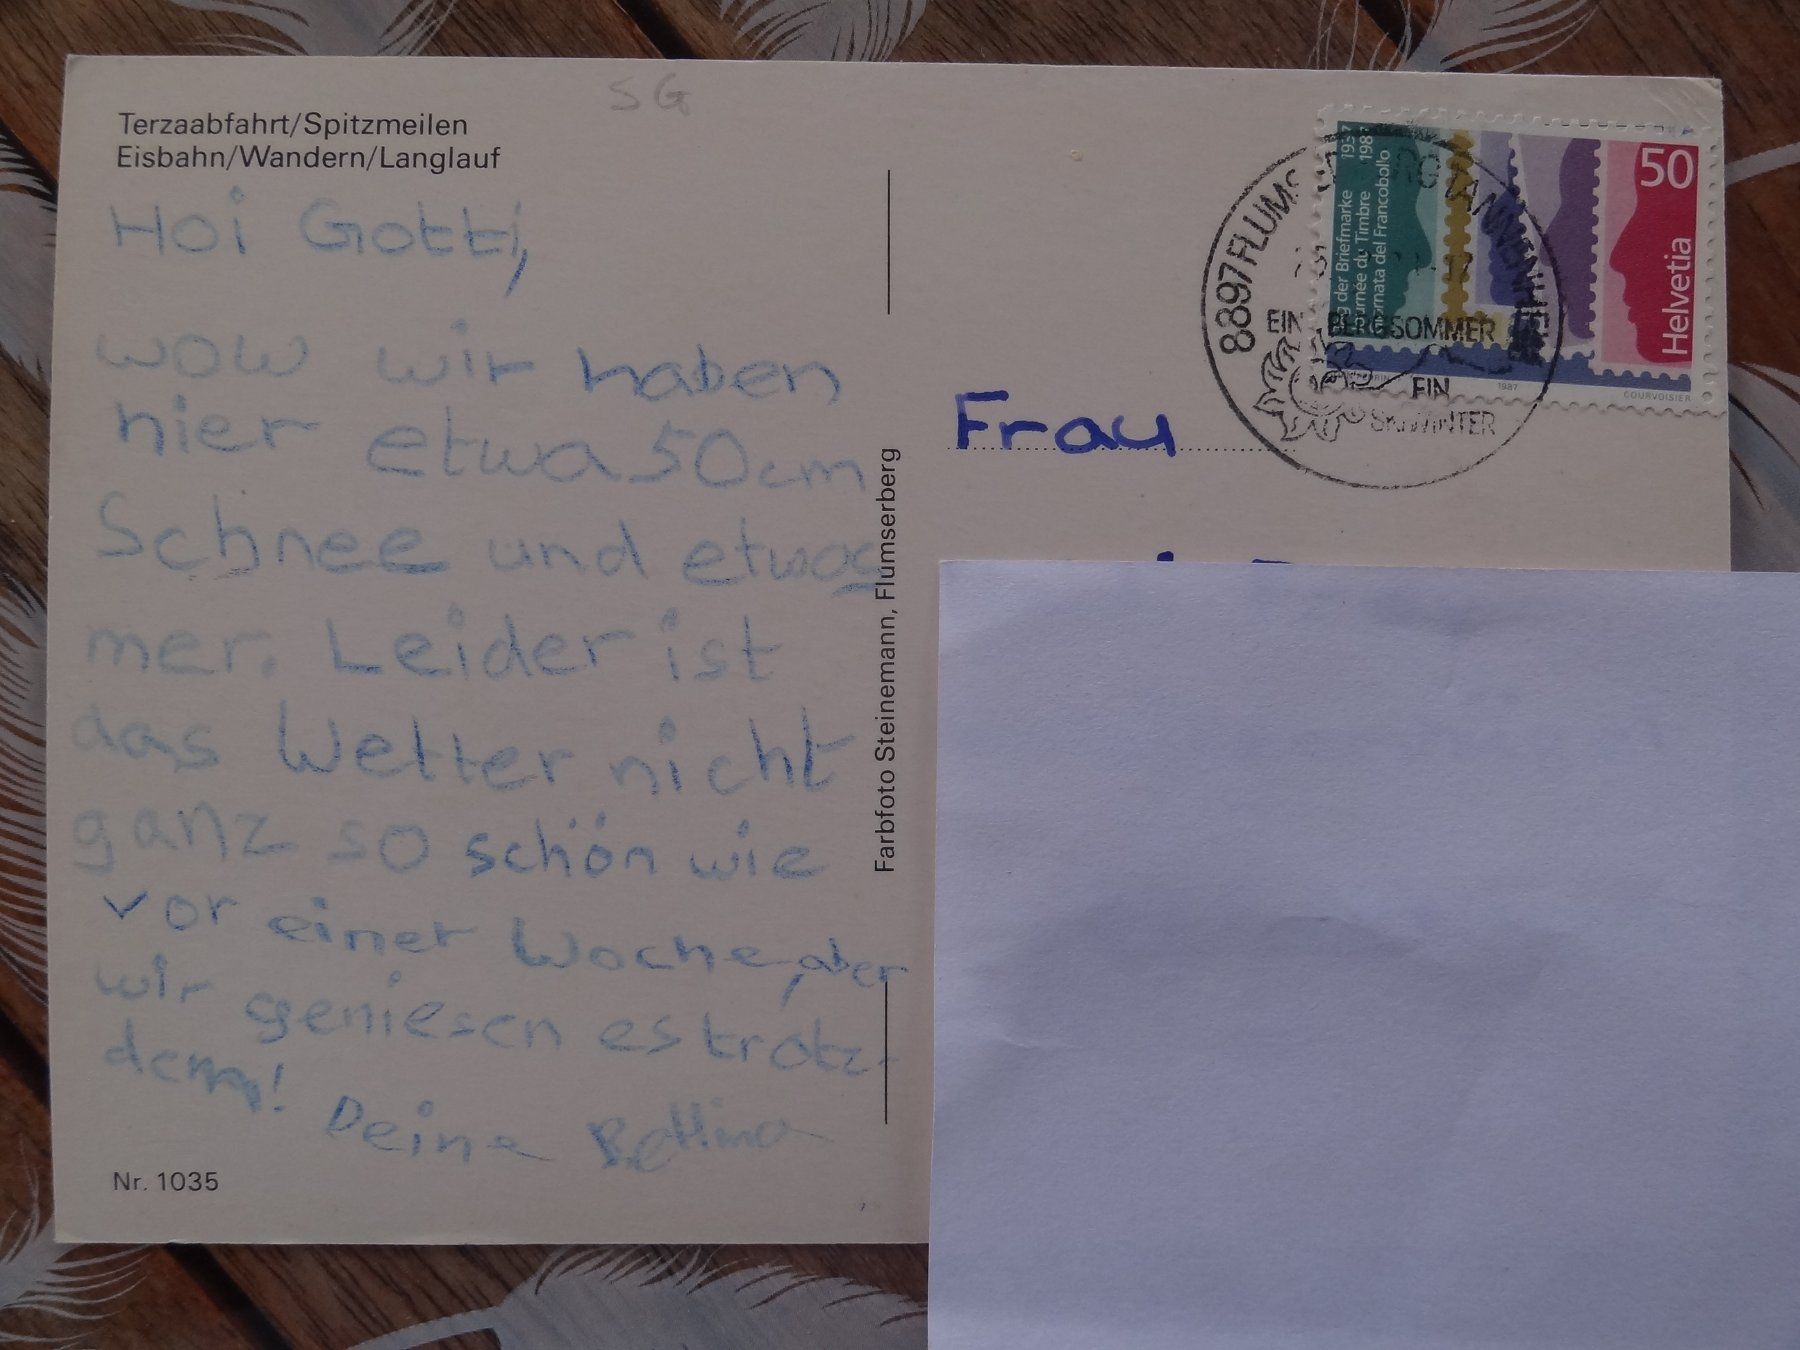 SG
Terzaabfahrt/Spitzmeilen
Eisbahn/Wandern/Langlauf
Hoi Gotti,
wow wir haben
hier etwa 50cm
Schnee und etwas
mer. Leider ist
das Wetter nicht
ganz so schön wie
vor einer Woche, aber
wir geniesen es trotz-
dem! Deine Bettina
Nr. 1035
Farbfoto Steinemann, Flumserberg
Frau
8897 FLUMSERBERG TANNENHEIM
EIN BERGSOMMER
EIN
SKIWINTER
Tag der Briefmarke 1937
Journée du Timbre 1987
Giornata del Francobollo
50
Helvetia
1987
COURVOISIER